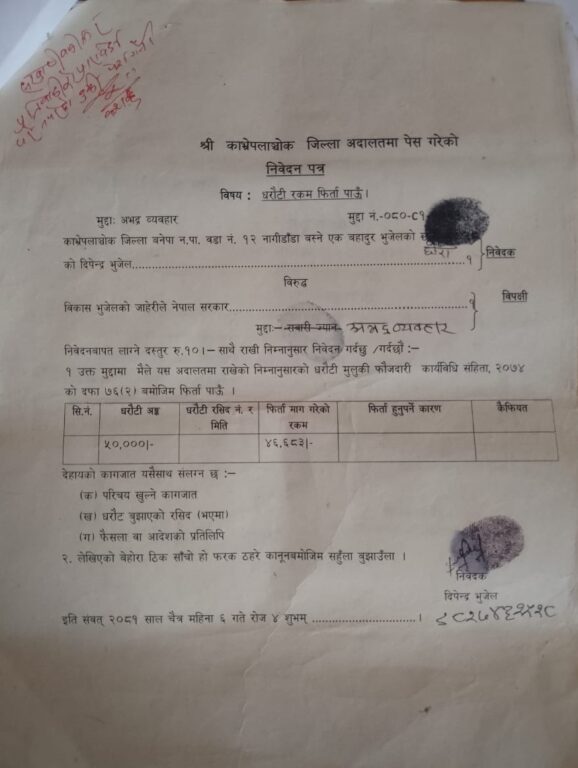 श्री काभ्रेपलाञ्चोक जिल्ला अदालतमा पेस गरेको
निवेदन पत्र
विषय : धरौटी रकम फिर्ता पाऊँ।
मुद्दाः अभद्र व्यवहार मुद्दा नं.-०८०-C१
काभ्रेपलाञ्चोक जिल्ला बनेपा न.पा. वडा नं. १२ नागीडाँडा बस्ने एक बहादुर भुजेलको
छोरा
को दिपेन्द्र भुजेल..........................................................१ निवेदक
विरुद्ध
विकास भुजेलको जाहेरीले नेपाल सरकार..........................................१ विपक्षी
मुद्दाः– सवारी ज्यान अभद्र व्यवहार
निवेदनबापत लाग्ने दस्तुर रु.१०।– साथै राखी निम्नानुसार निवेदन गर्दछु /गर्दछौं :–
१ उक्त मुद्दामा मैले यस अदालतमा राखेको निम्नानुसारको धरौटी मुलुकी फौजदारी कार्यविधि संहिता, २०७४
को दफा ७६(२) बमोजिम फिर्ता पाऊँ ।
सि.नं. धरौटी अङ्क धरौटी रसिद नं. र मिति फिर्ता माग गरेको रकम फिर्ता हुनुपर्ने कारण कैफियत
५०,०००/- ४६,६८३/-
देहायको कागजात यसैसाथ संलग्न छ :–
(क) परिचय खुल्ने कागजात
(ख) धरौट बुझाएको रसिद (भएमा)
(ग) फैसला वा आदेशको प्रतिलिपि
२. लेखिएको बेहोरा ठिक साँचो हो फरक ठहरे कानूनबमोजिम सहुँला बुझाउँला ।
निवेदक
दिपेन्द्र भुजेल
इति संबत् २०८१ साल चैत्र महिना ६ गते रोज ४ शुभम् ..........................।